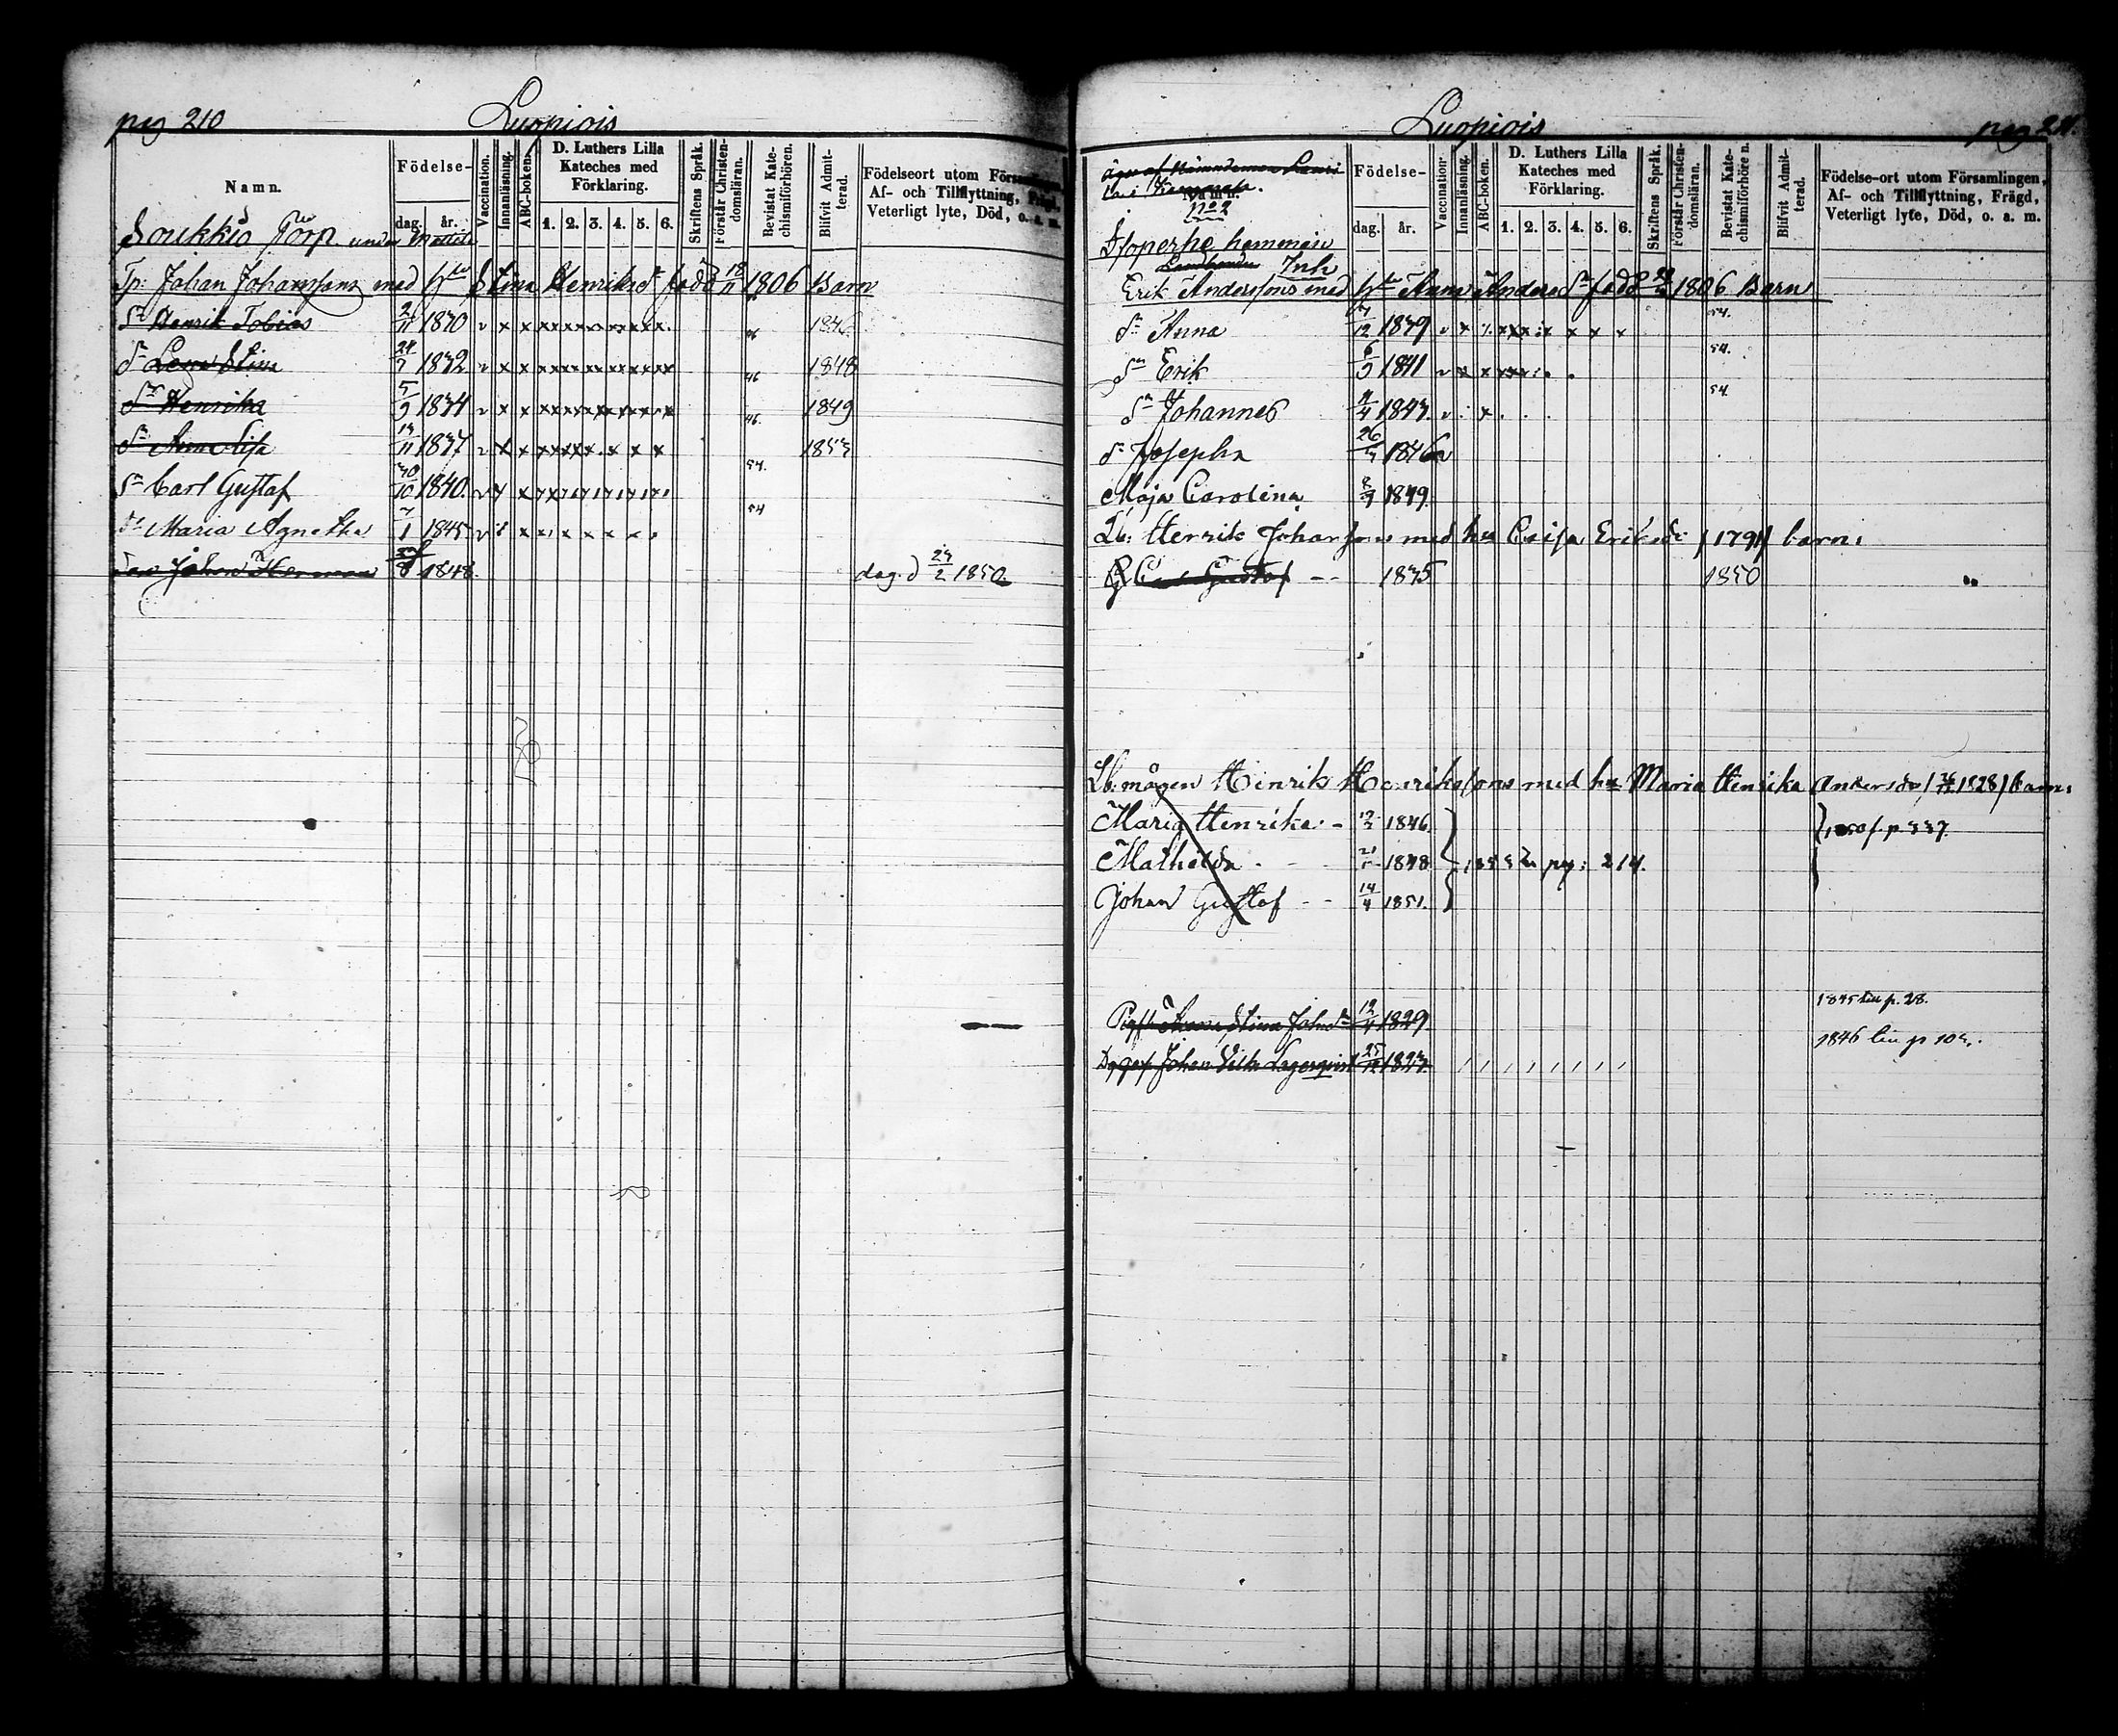 pag 210 Luopiois
Namn. Födelse- dag. år. Vaccination. Innanläsning. ABC-boken. D. Luthers Lilla Kateches med Förklaring. 1. 2. 3. 4. 5. 6. Skriftens Språk. Förstår Christendomsläran. Bevistat Katechismiförhören. Blifvit Admitterad. Födelseort utom Församlingen, Af- och Tillflyttning, Frägd, Veterligt lyte, Död, o. a. m.
Soukkio Torp under Mattila
Tp: Johan Johanssons med hu Stina Henriksd född 18/11 1806 Barn
Sn Henrik Tobias 2/11 1830 v x x x x x x x x x x x 46 1846
dr Lena Stina 24/7 1832 v x x x x x x x x x x x 46 1848
dr Henrika 5/9 1834 v x x x x x x x x x x x 46. 1849
dr Anna Lisa 13/11 1837 v x x x x x x x x x 1853
Sn Carl Gustaf 30/10 1840. 54.
dr Maria Agnetha 7/1 1845 54
Son Johan Herman 8 1848. dag. d 23/2 1850.
Luopiois pag 211.
Namn. Födelse- dag. år. Vaccination. Innanläsning. ABC-boken. D. Luthers Lilla Kateches med Förklaring. 1. 2. 3. 4. 5. 6. Skriftens Språk. Förstår Christendomsläran. Bevistat Katechismiförhören. Blifvit Admitterad. Födelse-ort utom Församlingen, Af- och Tillflyttning, Frägd, Veterligt lyte, Död, o. a. m.
No 2
Landbonde Inh
Erik Anderssons med hu Anna Andersd född 1806 Barn
dr Anna 12 1839 54.
Sn Erik 6/9 1841 54.
Sn Johannes 4 1843. 54.
dr Josepha 26 1846
Maja Carolina 1849.
Lb: Henrik Johanssons med hu Caisa Eriksdr (1791) barn:
Gustaf 1835 1850
Lb: mågen Henrik Henrikssons med hu Maria Henrika Andersdr 1828) barn:
Maria Henrika 1846. p 337.
Mathilda 1848 pag: 214.
Johan Gustaf 14/4 1851.
Stina 1829 1845 p. 28.
Johan Lagerqvist 25 1823. 1846 p 103.